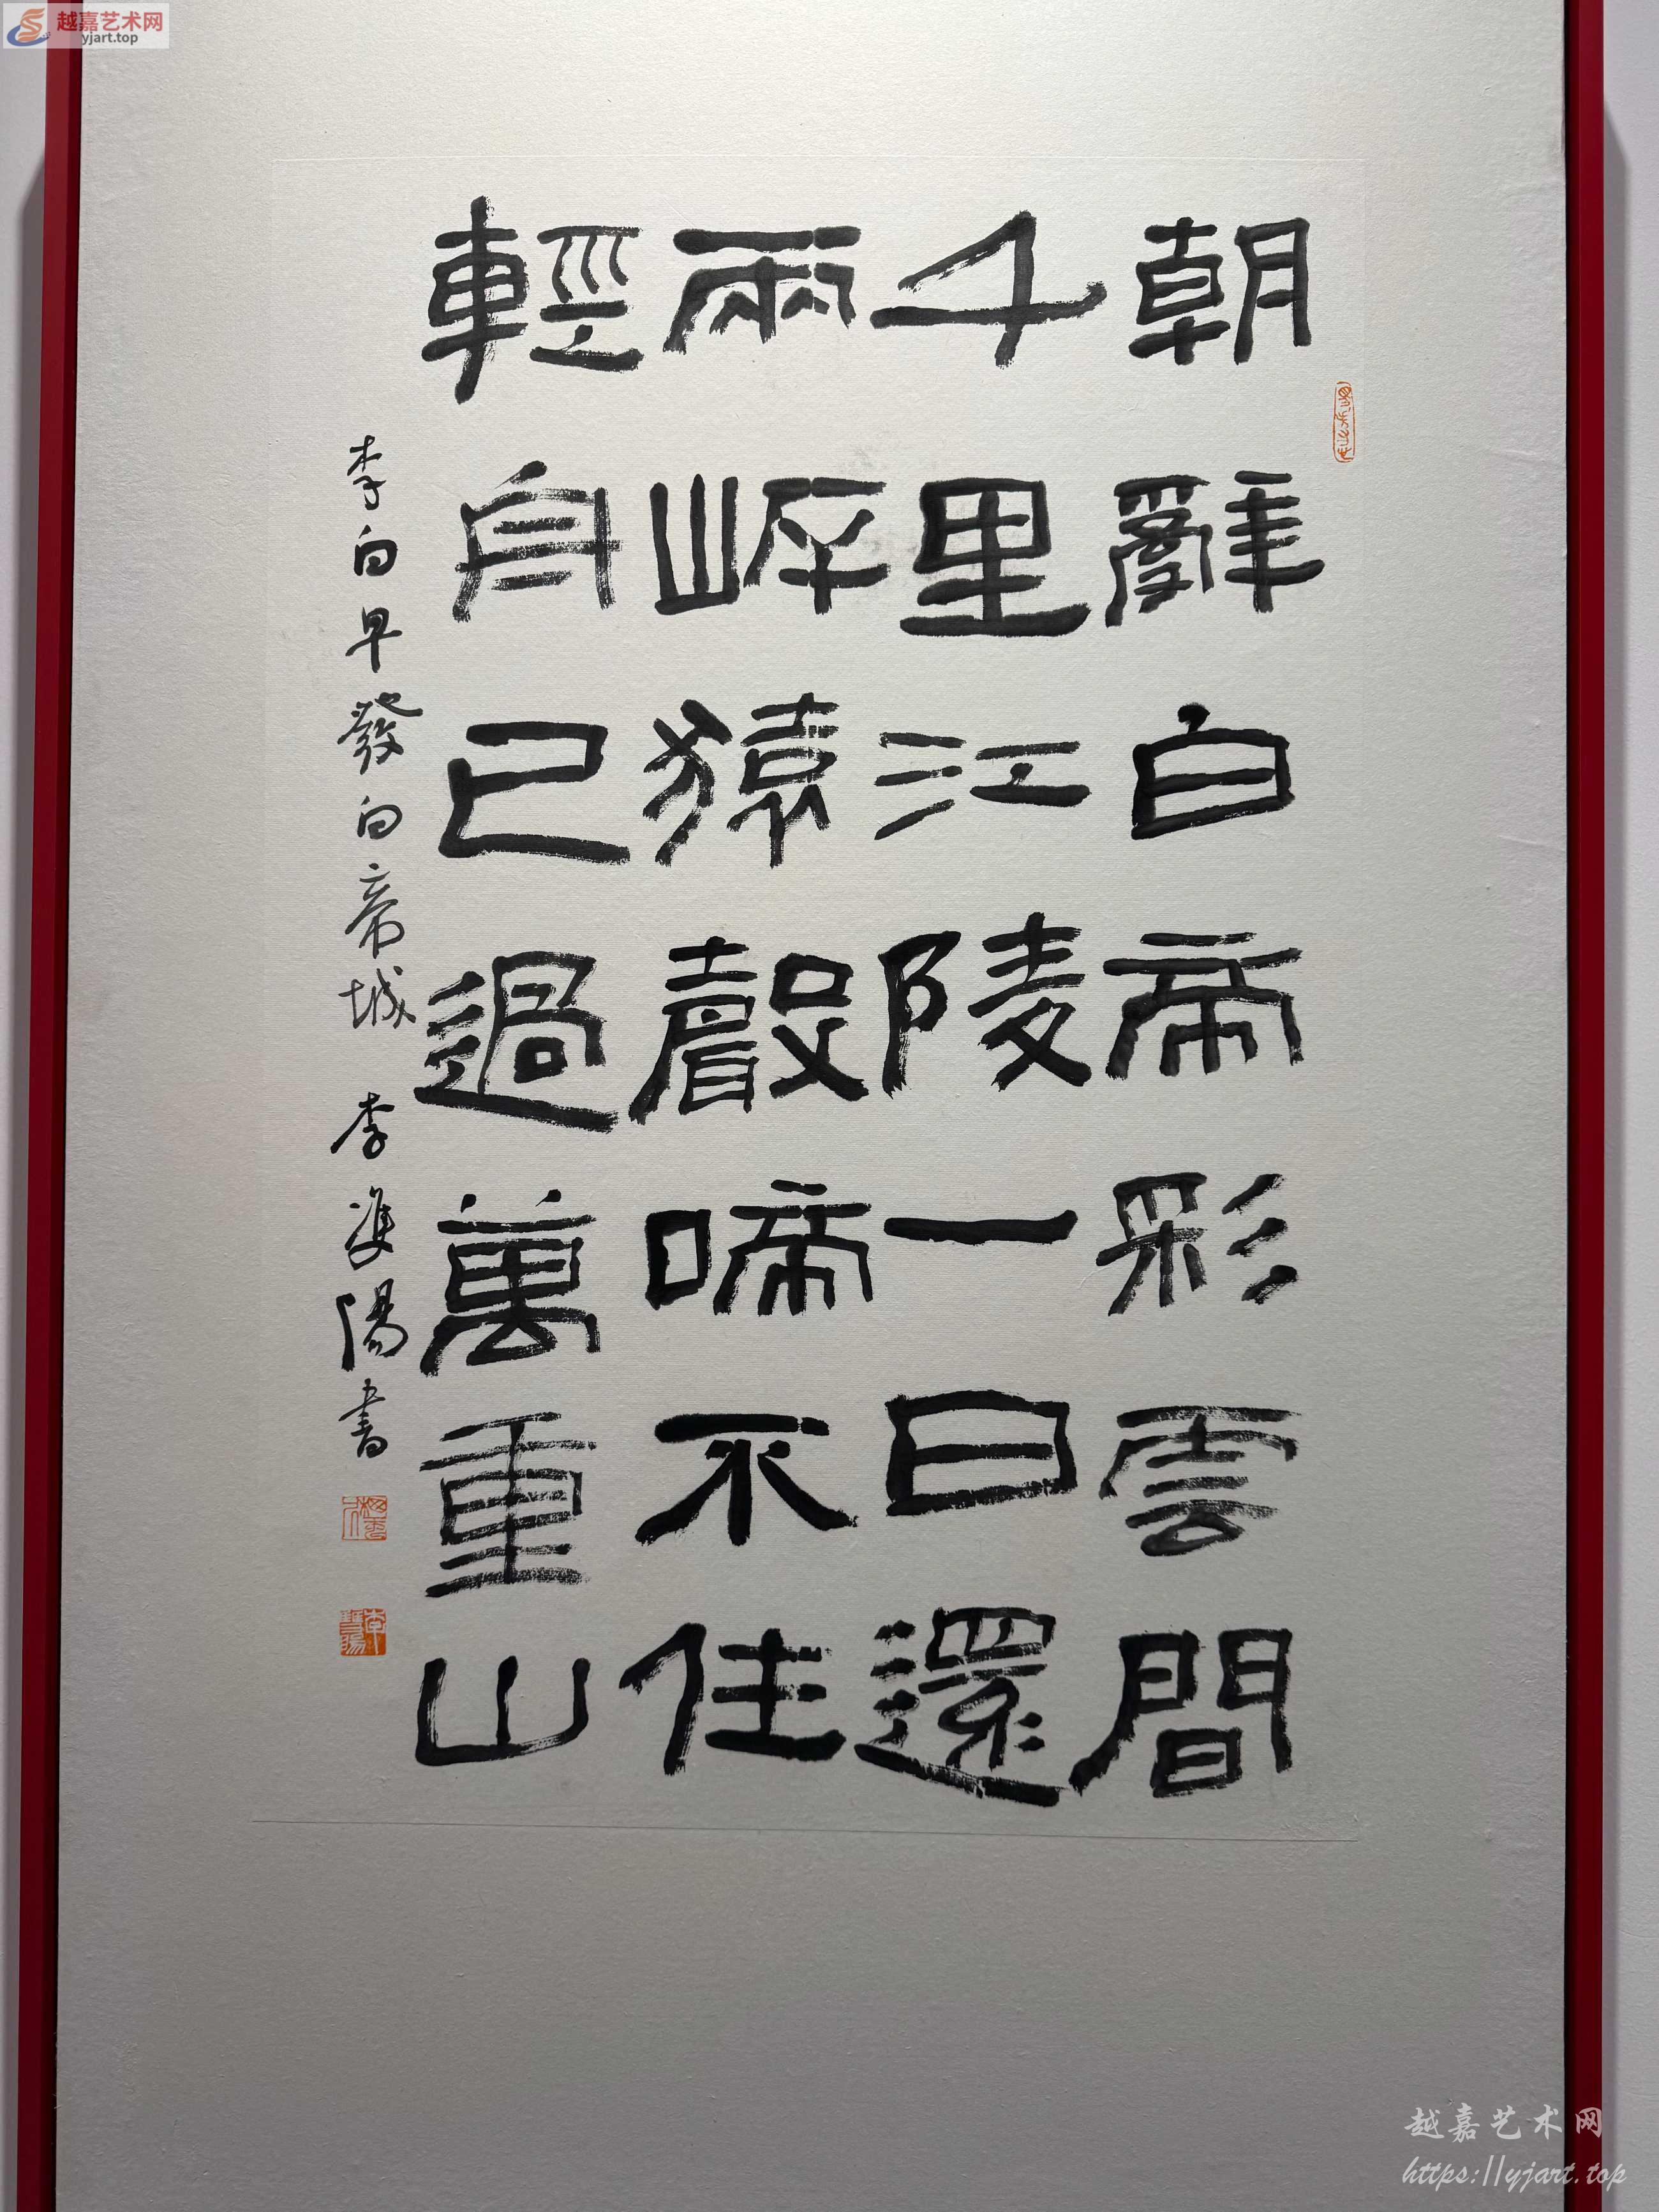 越嘉艺术网
yjart.top
朝辭白帝彩雲間
千里江陵一日還
兩岸猿聲啼不住
輕舟已過萬重山
李白早發白帝城 李雙陽書
越嘉艺术网
https://yjart.top